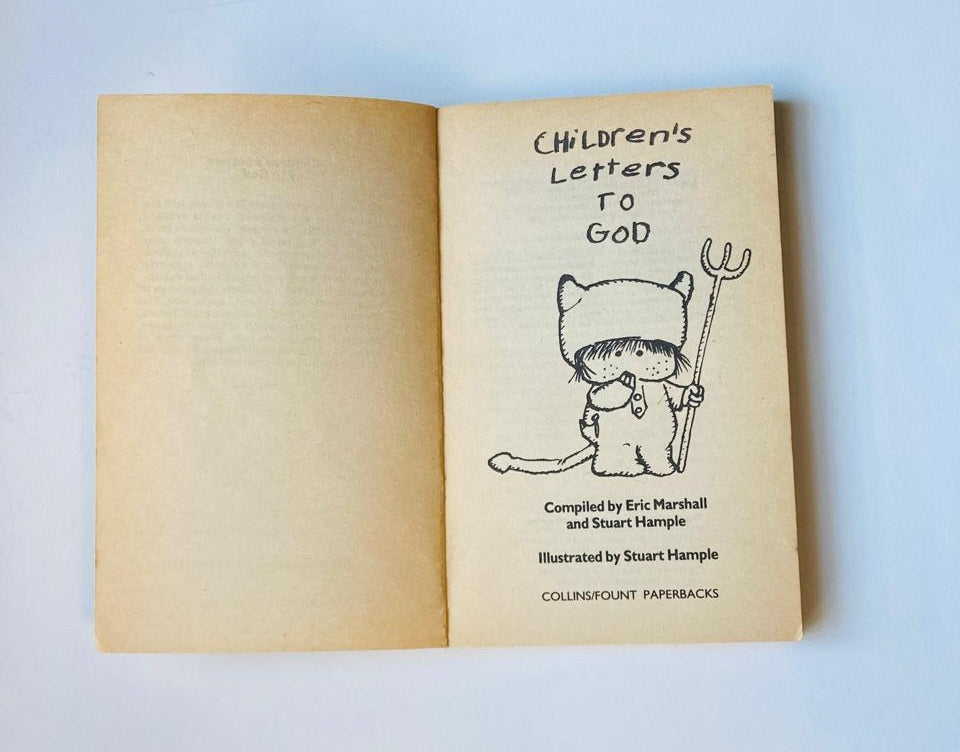 CHiLDren's
Letters
TO
GOD
Compiled by Eric Marshall
and Stuart Hample
Illustrated by Stuart Hample
COLLINS/FOUNT PAPERBACKS